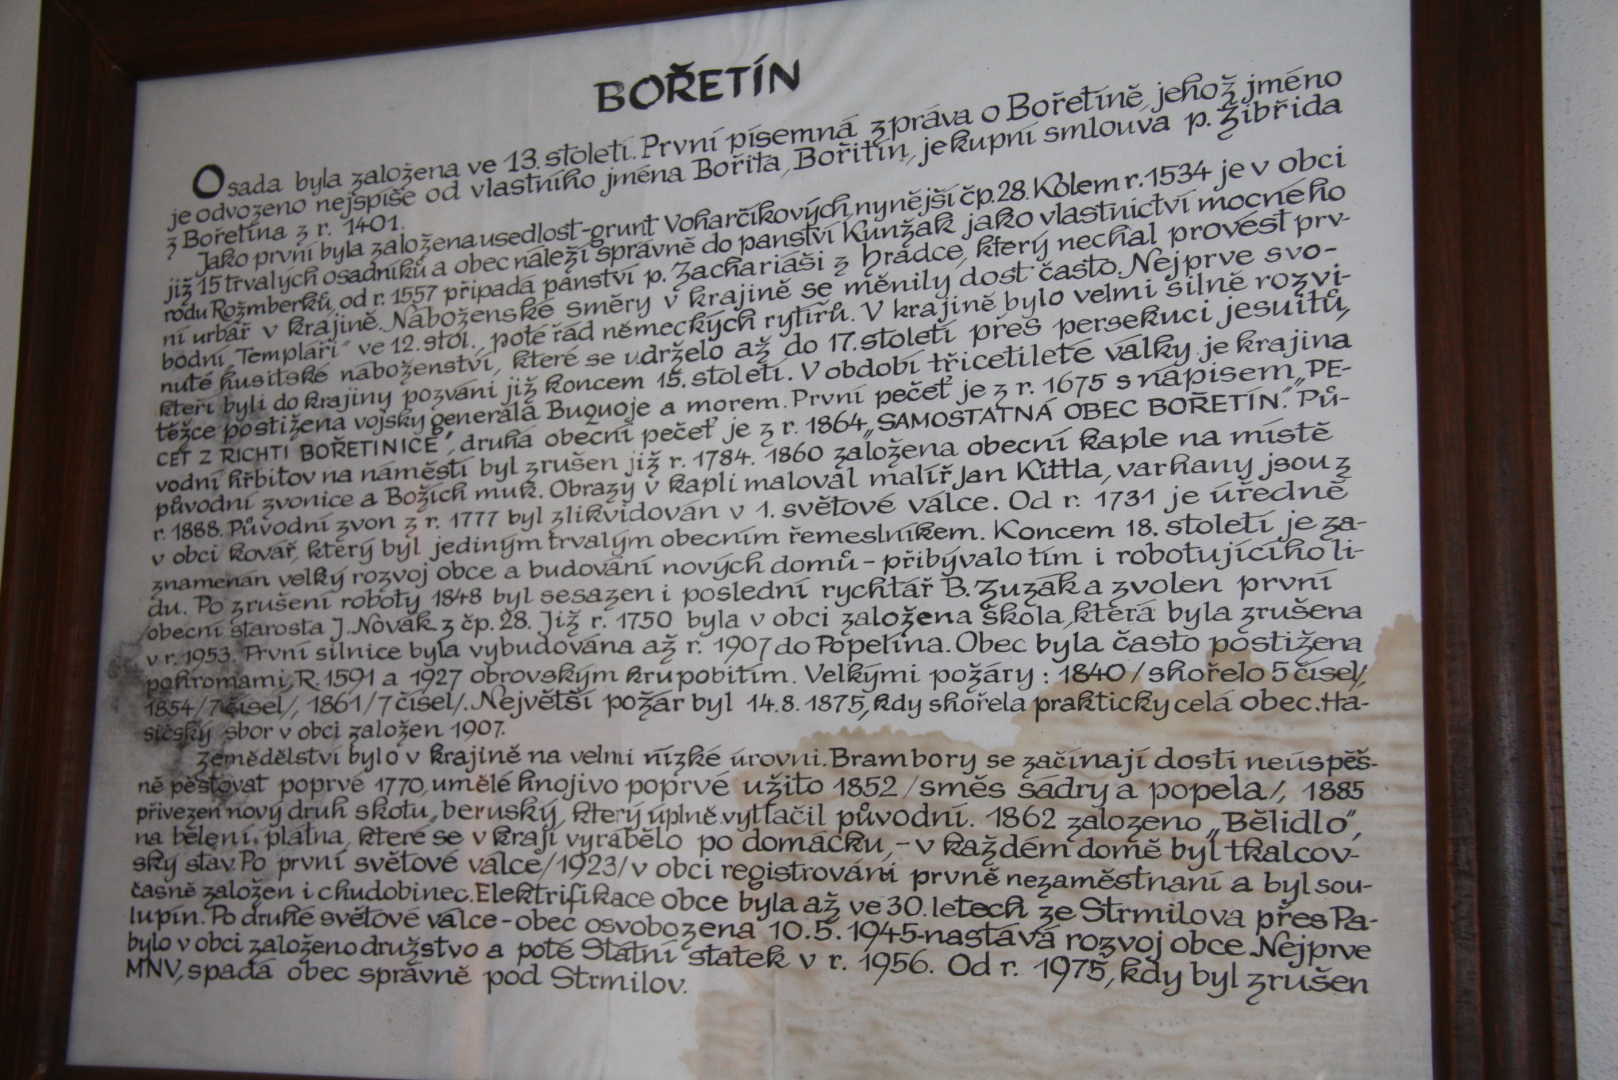 BOŘETÍN
Osada byla založena ve 13. století. První písemná zpráva o Bořetíně, jehož jméno
je odvozeno nejspíše od vlastního jména Bořita, Bořitín, je kupní smlouva p. Žibřida
z Bořetína z r. 1401.
Jako první byla založena usedlost-grunt Voharčíkových, nynější čp. 28. Kolem r. 1534 je v obci
již 15 trvalých osadníků a obec náleží správně do panství Kunžak jako vlastnictví mocného
rodu Rožmberků, od r. 1557 připadá panství p. Zachariáši z Hrádce, který nechal provést prv-
ní urbář v krajině. Náboženské směry v krajině se měnily dost často. Nejprve svo-
bodní „Templáři" ve 12. stol., poté řád německých rytířů. V krajině bylo velmi silně rozvi-
nuté husitské náboženství, které se udrželo až do 17. století přes persekuci jesuitů,
kteří byli do krajiny pozváni již koncem 15. století. V období třicetileté války je krajina
těžce postižena vojsky generála Buquoje a morem. První pečeť je z r. 1675 s nápisem „PE-
CET Z RICHTI BOŘETINICE", druhá obecní pečeť je z r. 1864 „SAMOSTATNÁ OBEC BOŘETÍN." Pů-
vodní hřbitov na náměstí byl zrušen již r. 1784. 1860 založena obecní kaple na místě
původní zvonice a Božích muk. Obrazy v kapli maloval malíř Jan Kittla, varhany jsou z
r. 1888. Původní zvon z r. 1777 byl zlikvidován v 1. světové válce. Od r. 1731 je úředně
v obci kovář, který byl jediným trvalým obecním řemeslníkem. Koncem 18. století je za-
znamenán velký rozvoj obce a budování nových domů - přibývalo tím i robotujícího li-
du. Po zrušení roboty 1848 byl sesazen i poslední rychtář B. Zuzák a zvolen první
obecní starosta J. Novák z čp. 28. Již r. 1750 byla v obci založena škola, která byla zrušena
v r. 1953. První silnice byla vybudována až r. 1907 do Popelína. Obec byla často postižena
pohromami, R. 1591 a 1927 obrovským krupobitím. Velkými požáry : 1840 / shořelo 5 čísel/,
1854 / 7 čísel/, 1861 / 7 čísel/. Největší požár byl 14. 8. 1875, kdy shořela prakticky celá obec. Ha-
sičský sbor v obci založen 1907.
Zemědělství bylo v krajině na velmi nízké úrovni. Brambory se začínají dosti neúspěš-
ně pěstovat poprvé 1770, umělé hnojivo poprvé užito 1852 / směs sádry a popela /, 1885
přivezen nový druh skotu „beruský, který úplně vytlačil původní. 1862 založeno „Bělidlo",
na bělení plátna, které se v kraji vyrábělo po domácku, - v každém domě byl tkalcov-
ský stav. Po první světové válce / 1923 / v obci registrováni prvně nezaměstnaní a byl sou-
časně založen i chudobinec. Elektrifikace obce byla až ve 30. letech ze Strmilova přes Pa-
lupín. Po druhé světové válce - obec osvobozena 10. 5. 1945 - nastává rozvoj obce. Nejprve
bylo v obci založeno družstvo a poté Státní statek v r. 1956. Od r. 1975, kdy byl zrušen
MNV, spadá obec správně pod Strmilov.